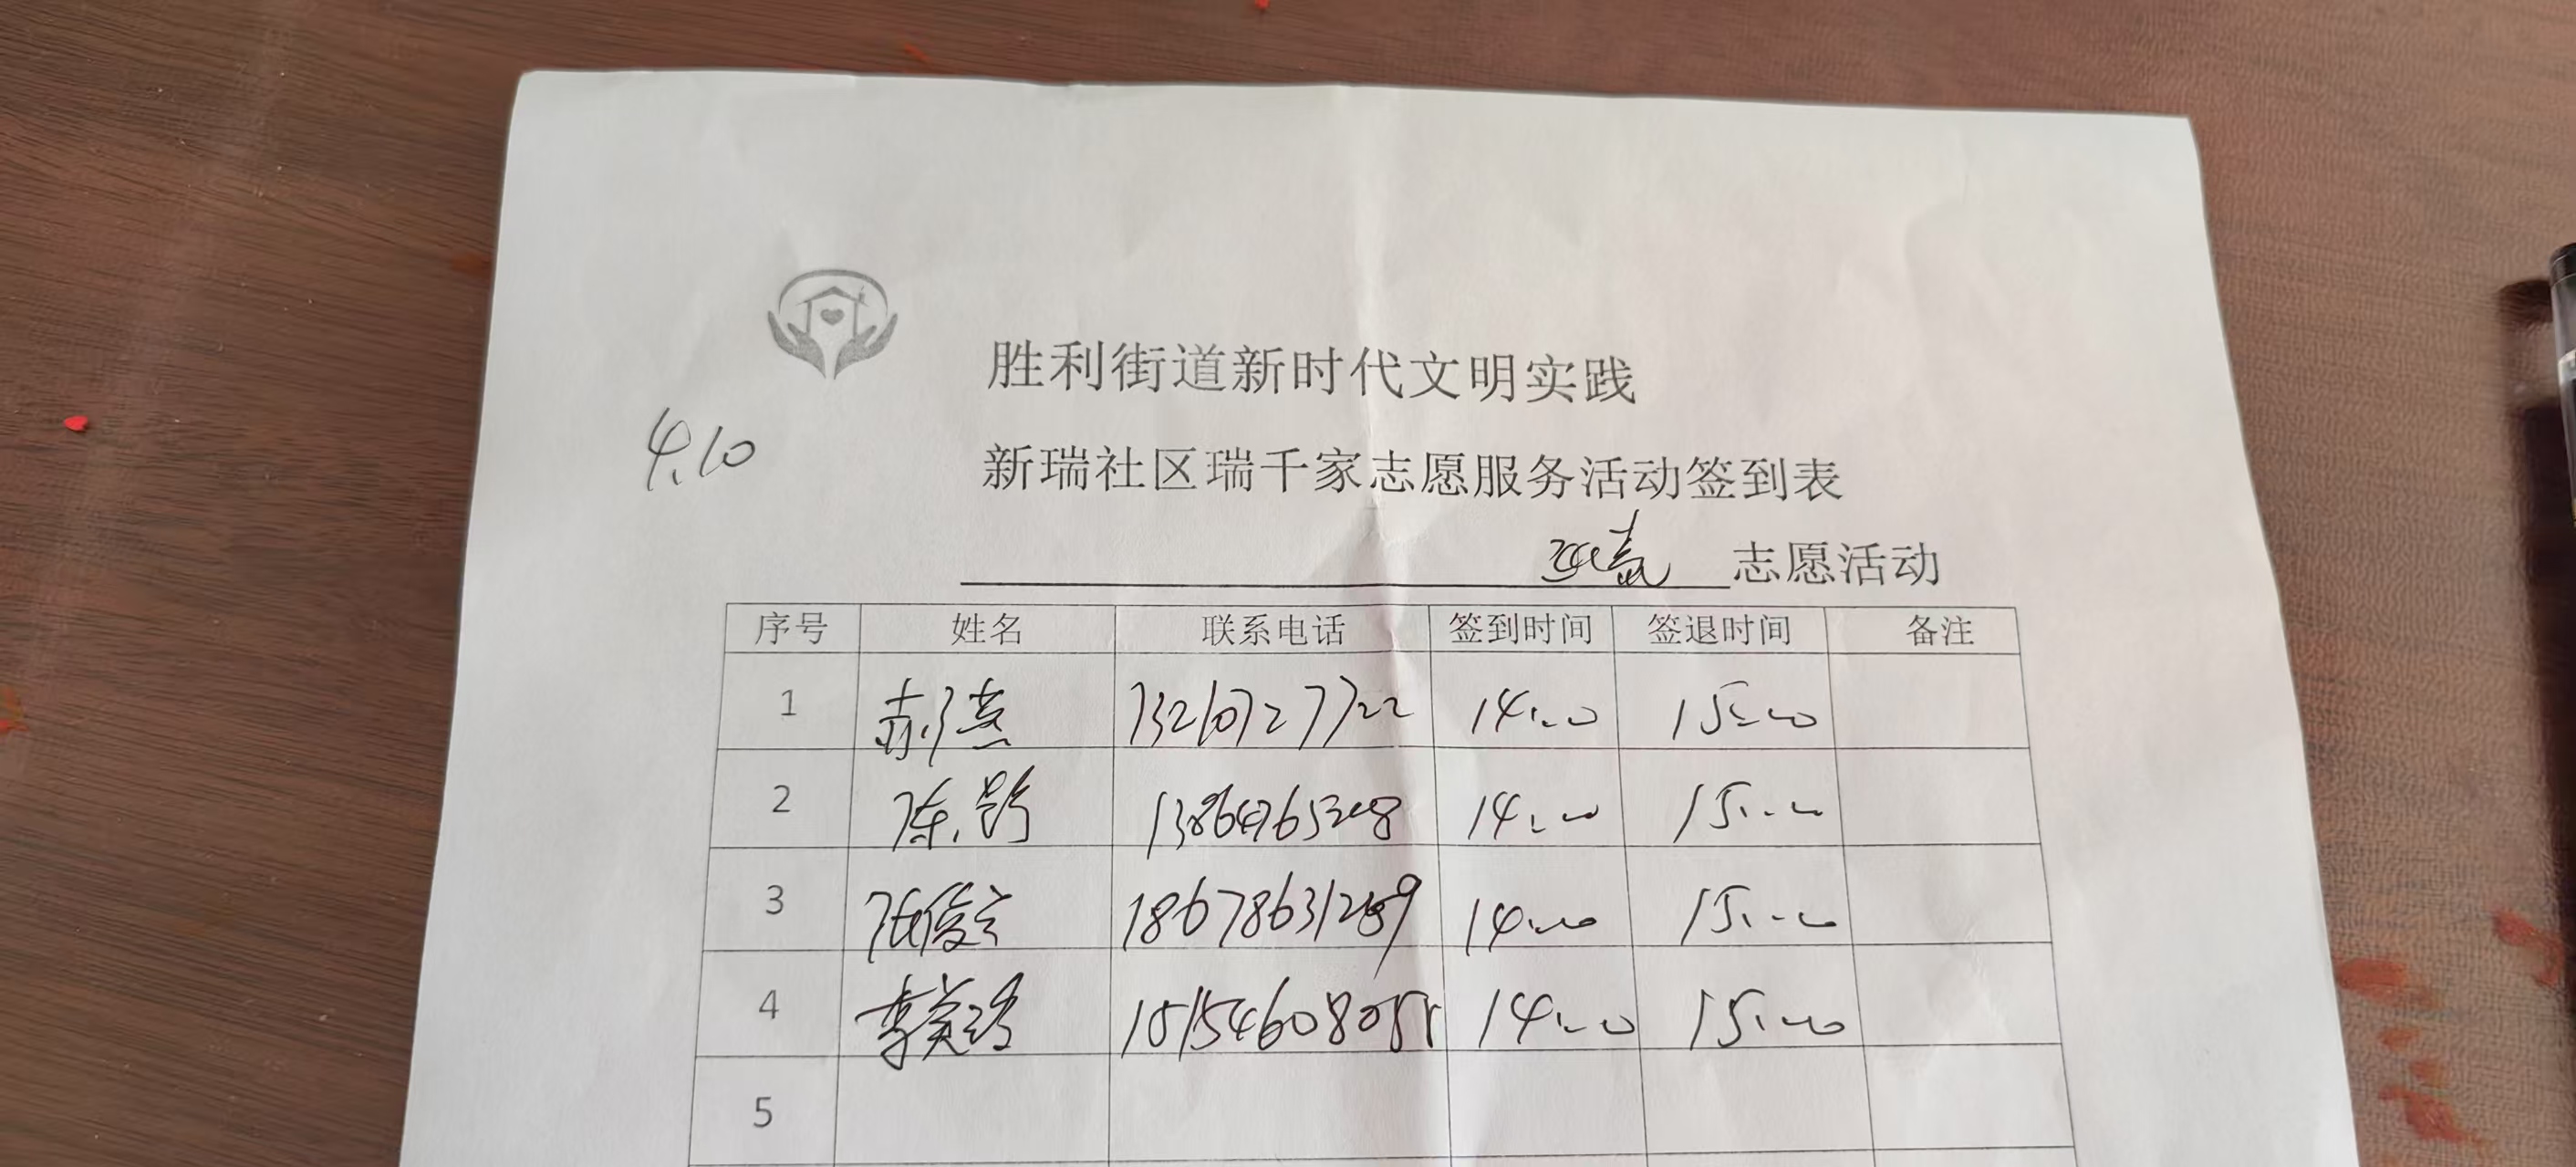 胜利街道新时代文明实践
4.10
新瑞社区瑞千家志愿服务活动签到表
志愿活动
序号 姓名 联系电话 签到时间 签退时间 备注
1 郝燕 13210727722 14:00 15:00
2 陈影 14:00 15:00
3 张俊 18678631289 14:00 15:00
4 李美 14:00 15:00
5